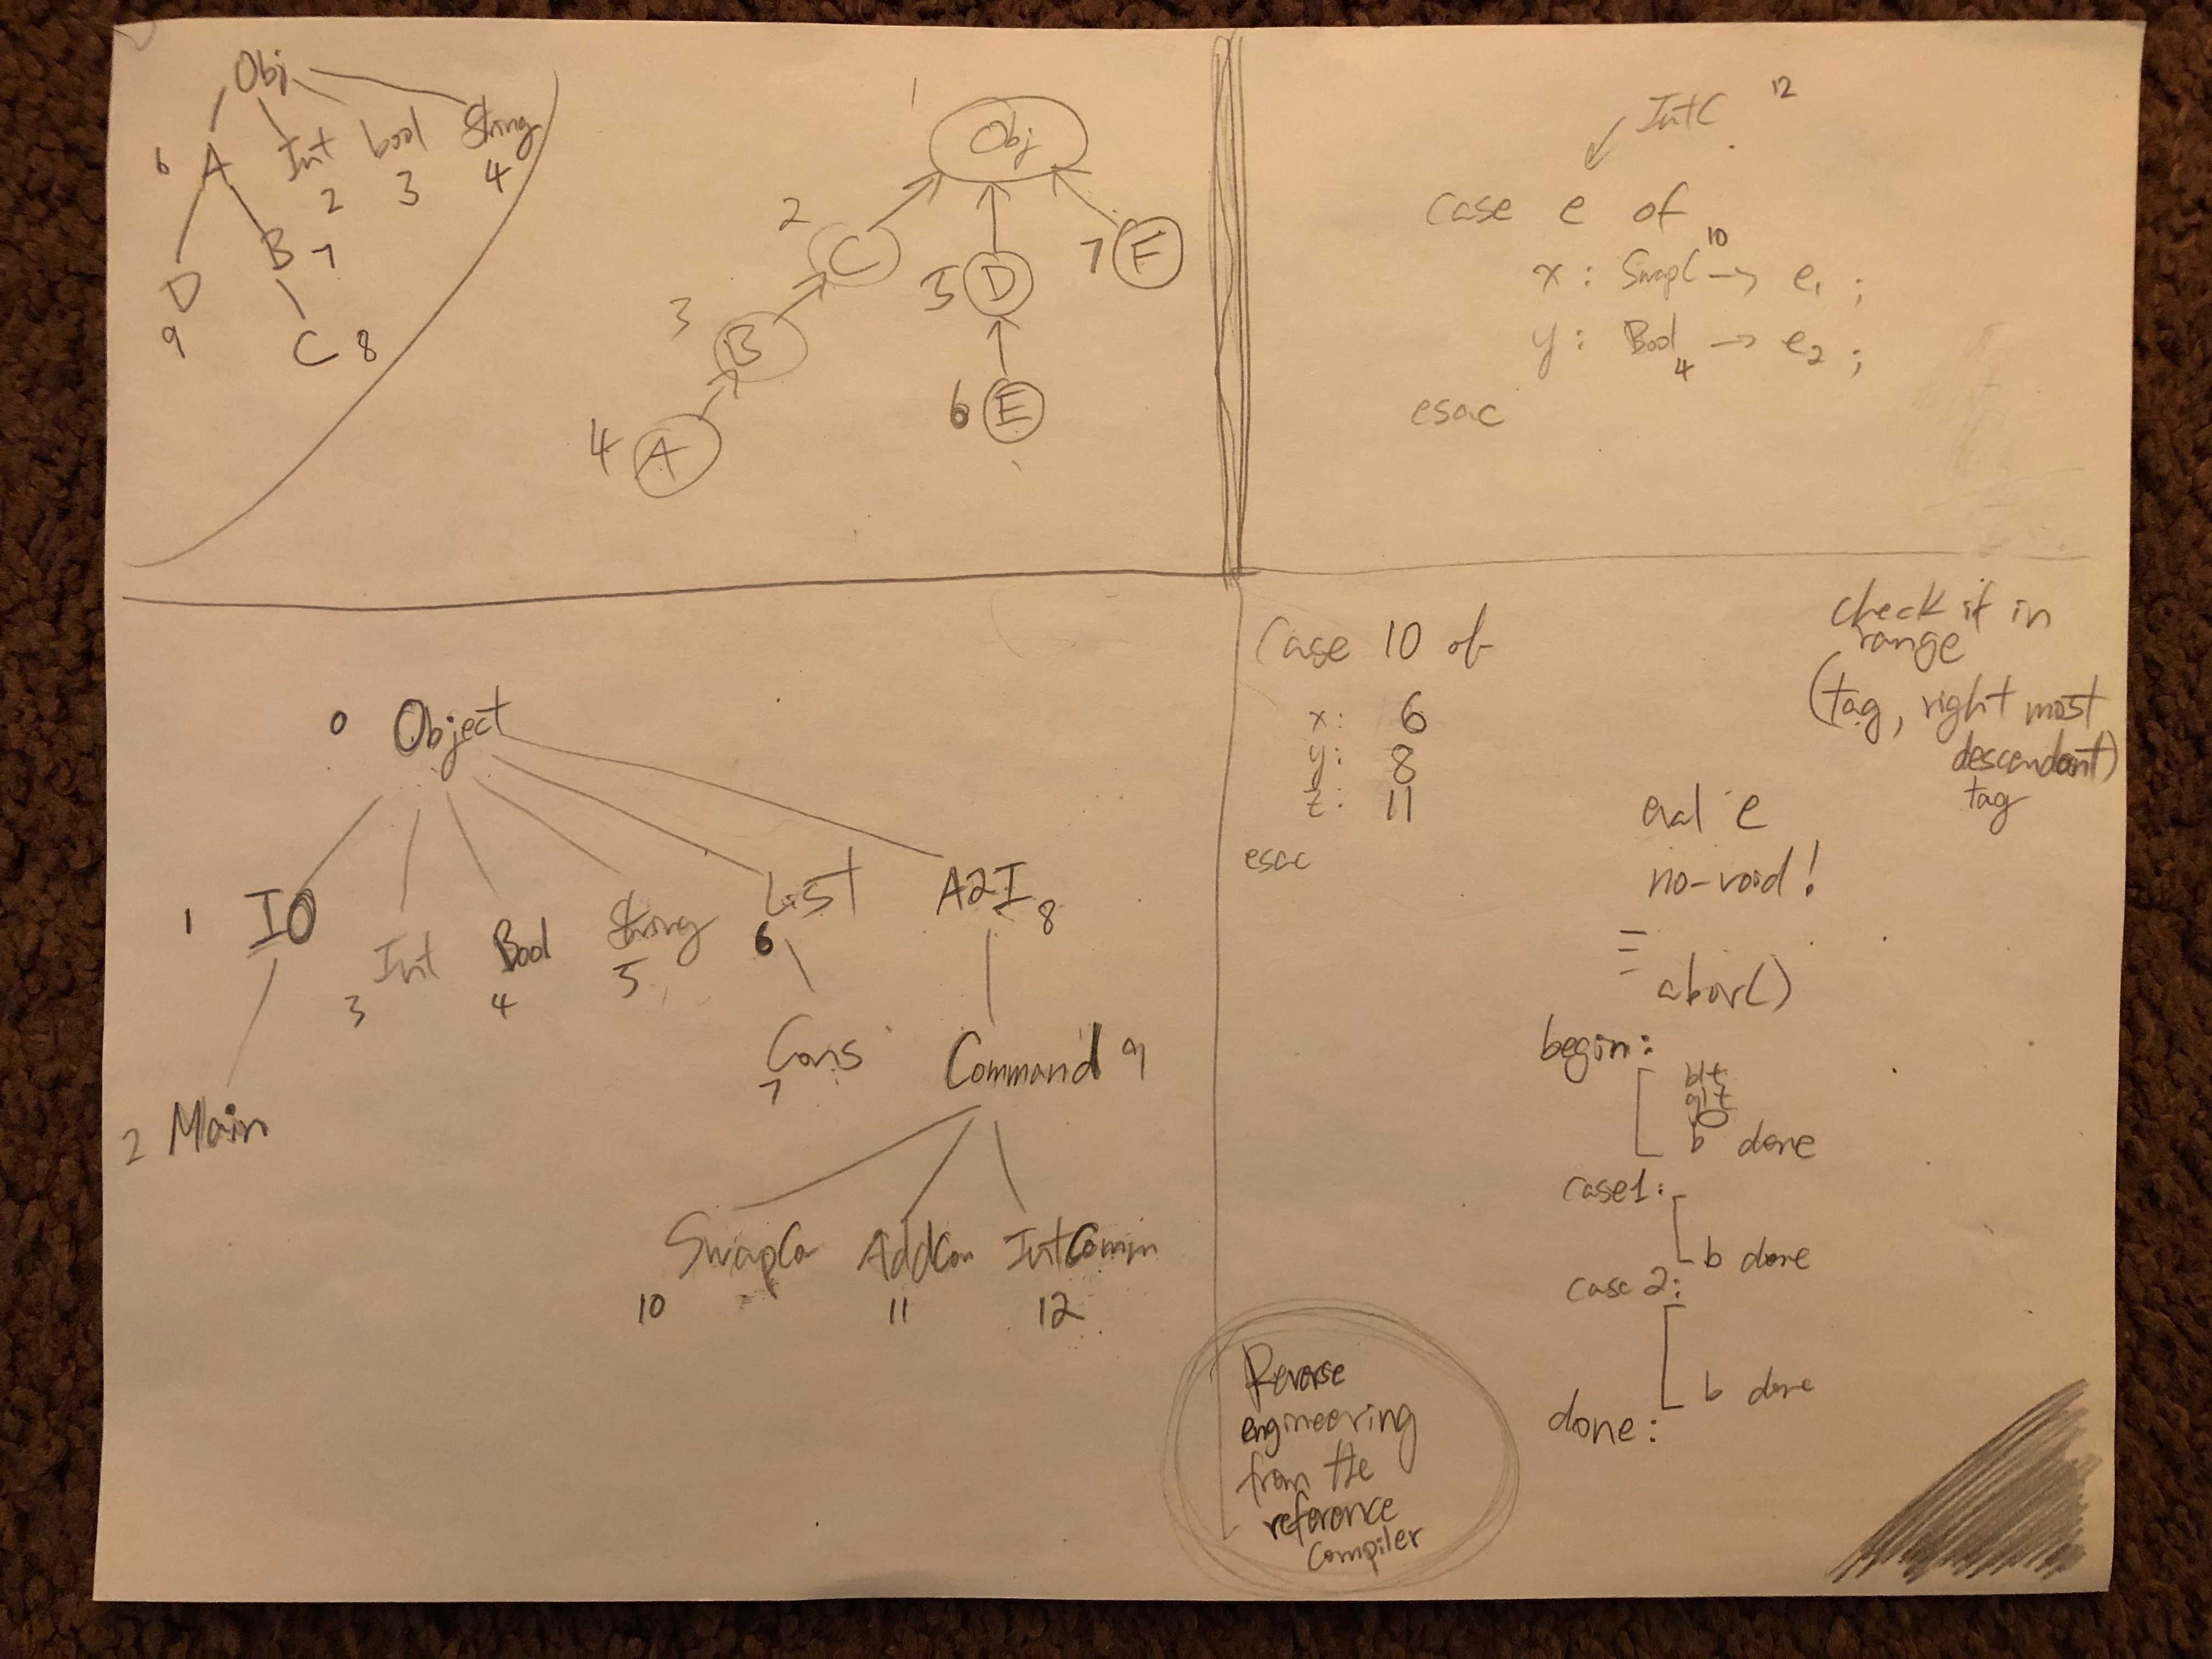 Obj
6 A Int bool String
2 3 4
D B 7
9 C 8
1
Obj
2 C
5 D 7 F
3 B
6 E
4 A
IntC 12
case e of
x : SwapC 10 → e1 ;
y : Bool 4 → e2 ;
esac
0 Object
1 IO
3 Int
Bool
4
String
5
List
6
A2I 8
Cons
7
Command 9
2 Main
SwapCo AddCom IntComm
10 11 12
Case 10 of
x: 6
y: 8
z: 11
esac
check if in
range
(tag, right most
descendant)
tag
eval e
no-void!
abort()
begin:
blt
bgt
b done
case1:
b done
case 2:
b done
done:
Reverse
engineering
from the
reference
Compiler